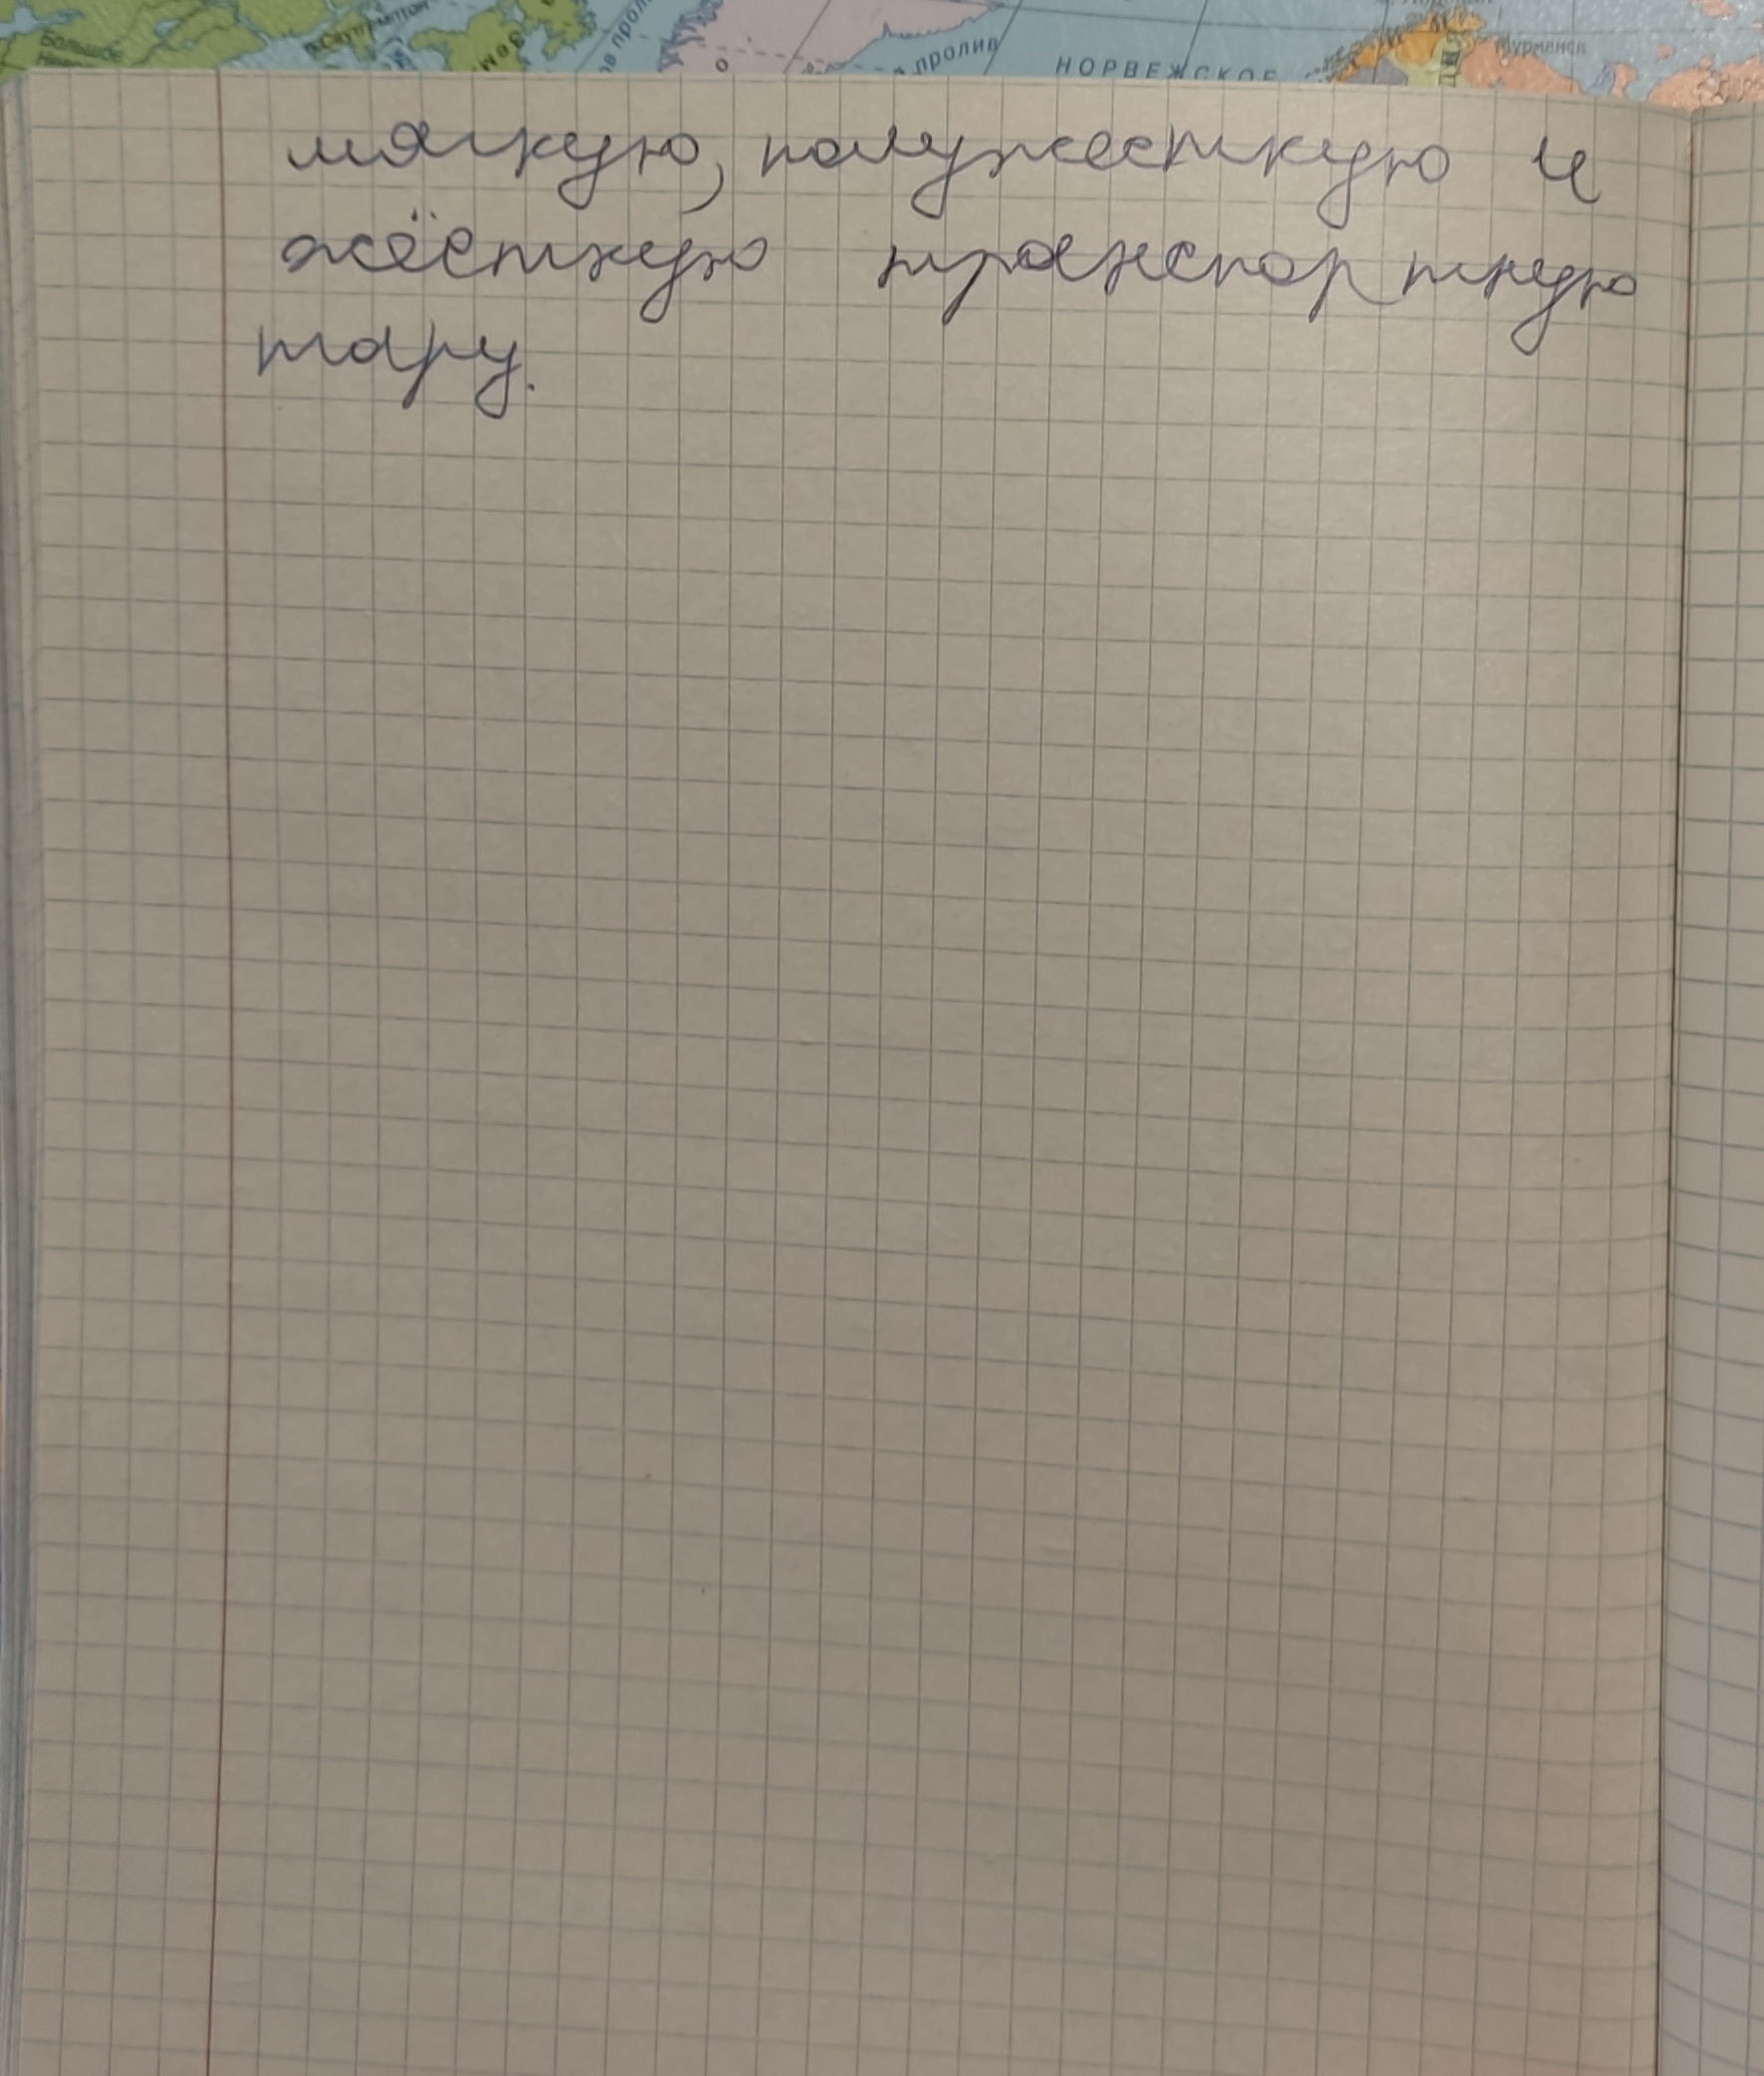 Большое
Саутгемптон
пролив
НОРВЕЖСКОЕ
Мурманск
мягкую, полужесткую и
жёсткую транспортную
тару.